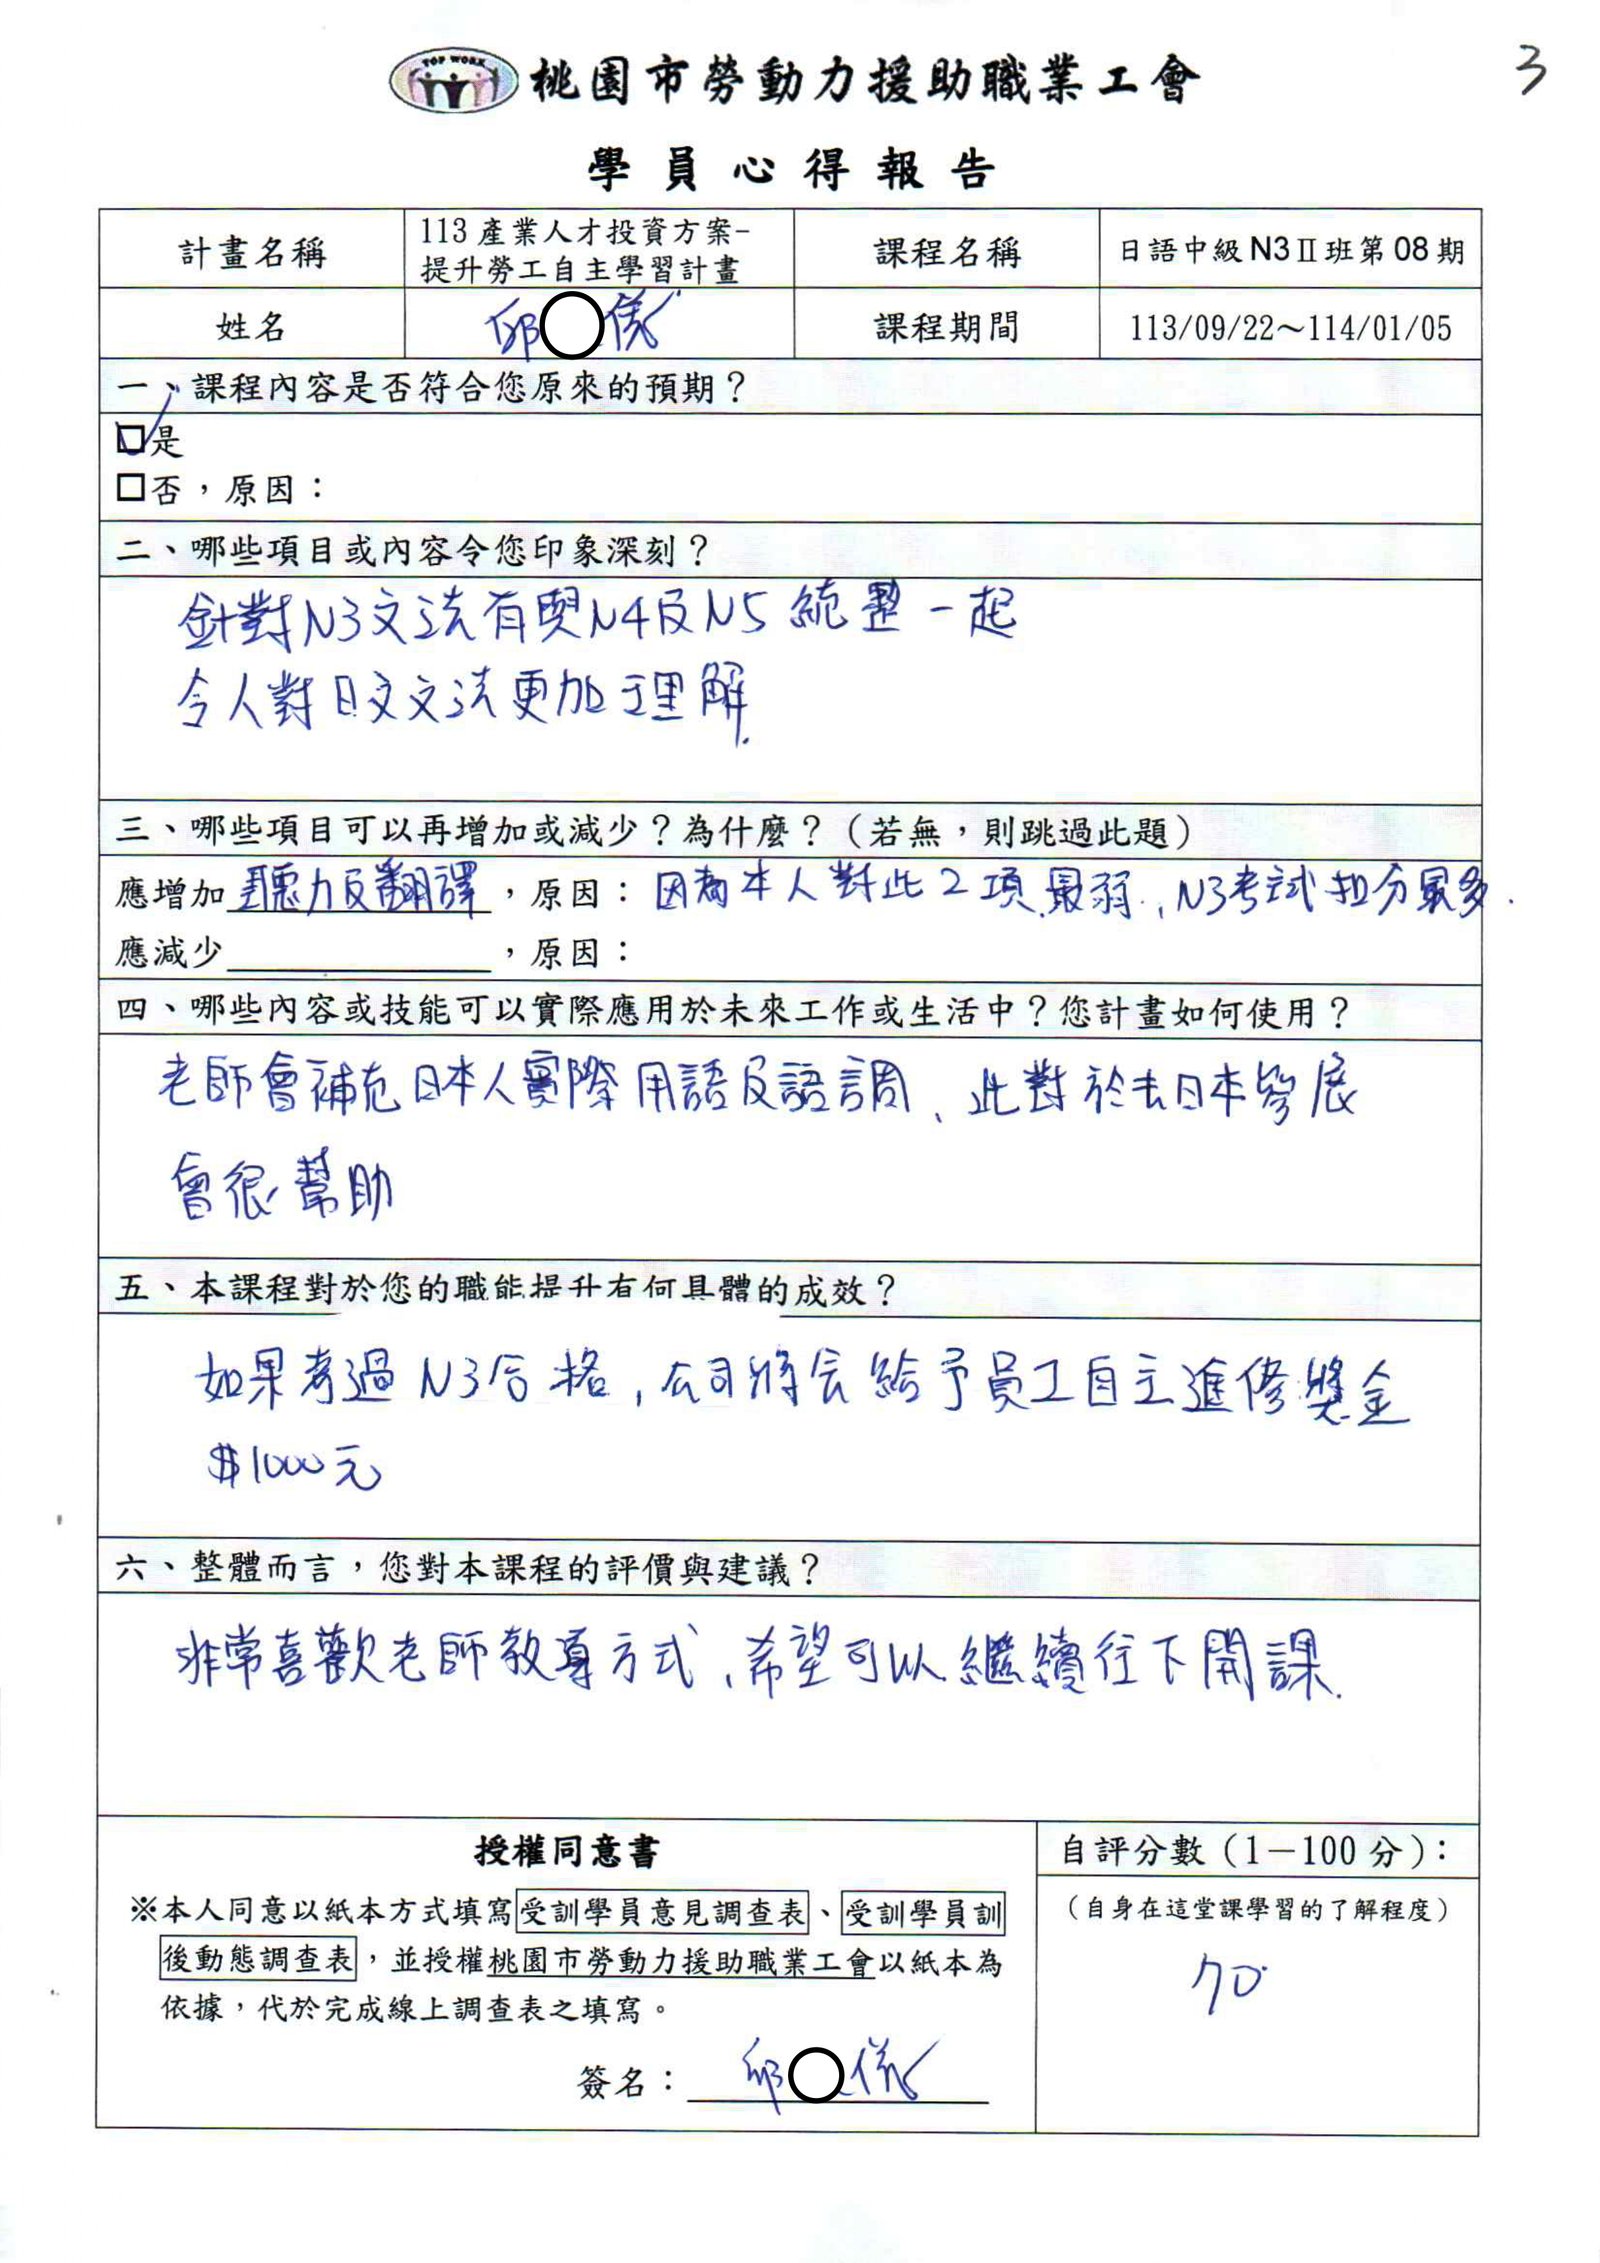 TOP WORK
桃園市勞動力援助職業工會
3
學員心得報告
計畫名稱
113 產業人才投資方案-
提升勞工自主學習計畫
課程名稱
日語中級 N3Ⅱ班第 08 期
姓名
邱○儀
課程期間
113/09/22～114/01/05
一、課程內容是否符合您原來的預期？
☑是
□否，原因：
二、哪些項目或內容令您印象深刻？
針對N3文法有與N4及N5統整一起
令人對日文文法更加理解.
三、哪些項目可以再增加或減少？為什麼？（若無，則跳過此題）
應增加聽力及翻譯，原因：因為本人對此2項最弱，N3考試拉分最多.
應減少＿＿＿＿，原因：
四、哪些內容或技能可以實際應用於未來工作或生活中？您計畫如何使用？
老師會補充日本人實際用語及語調、此對於去日本參展
會很幫助
五、本課程對於您的職能提升有何具體的成效？
如果考過N3合格，公司將会給予員工自主進修獎金
$1000元
六、整體而言，您對本課程的評價與建議？
非常喜歡老師教導方式，希望可以繼續往下開課.
授權同意書
※本人同意以紙本方式填寫受訓學員意見調查表、受訓學員訓
後動態調查表，並授權桃園市勞動力援助職業工會以紙本為
依據，代於完成線上調查表之填寫。
簽名：邱○儀
自評分數（1－100 分）：
（自身在這堂課學習的了解程度）
70